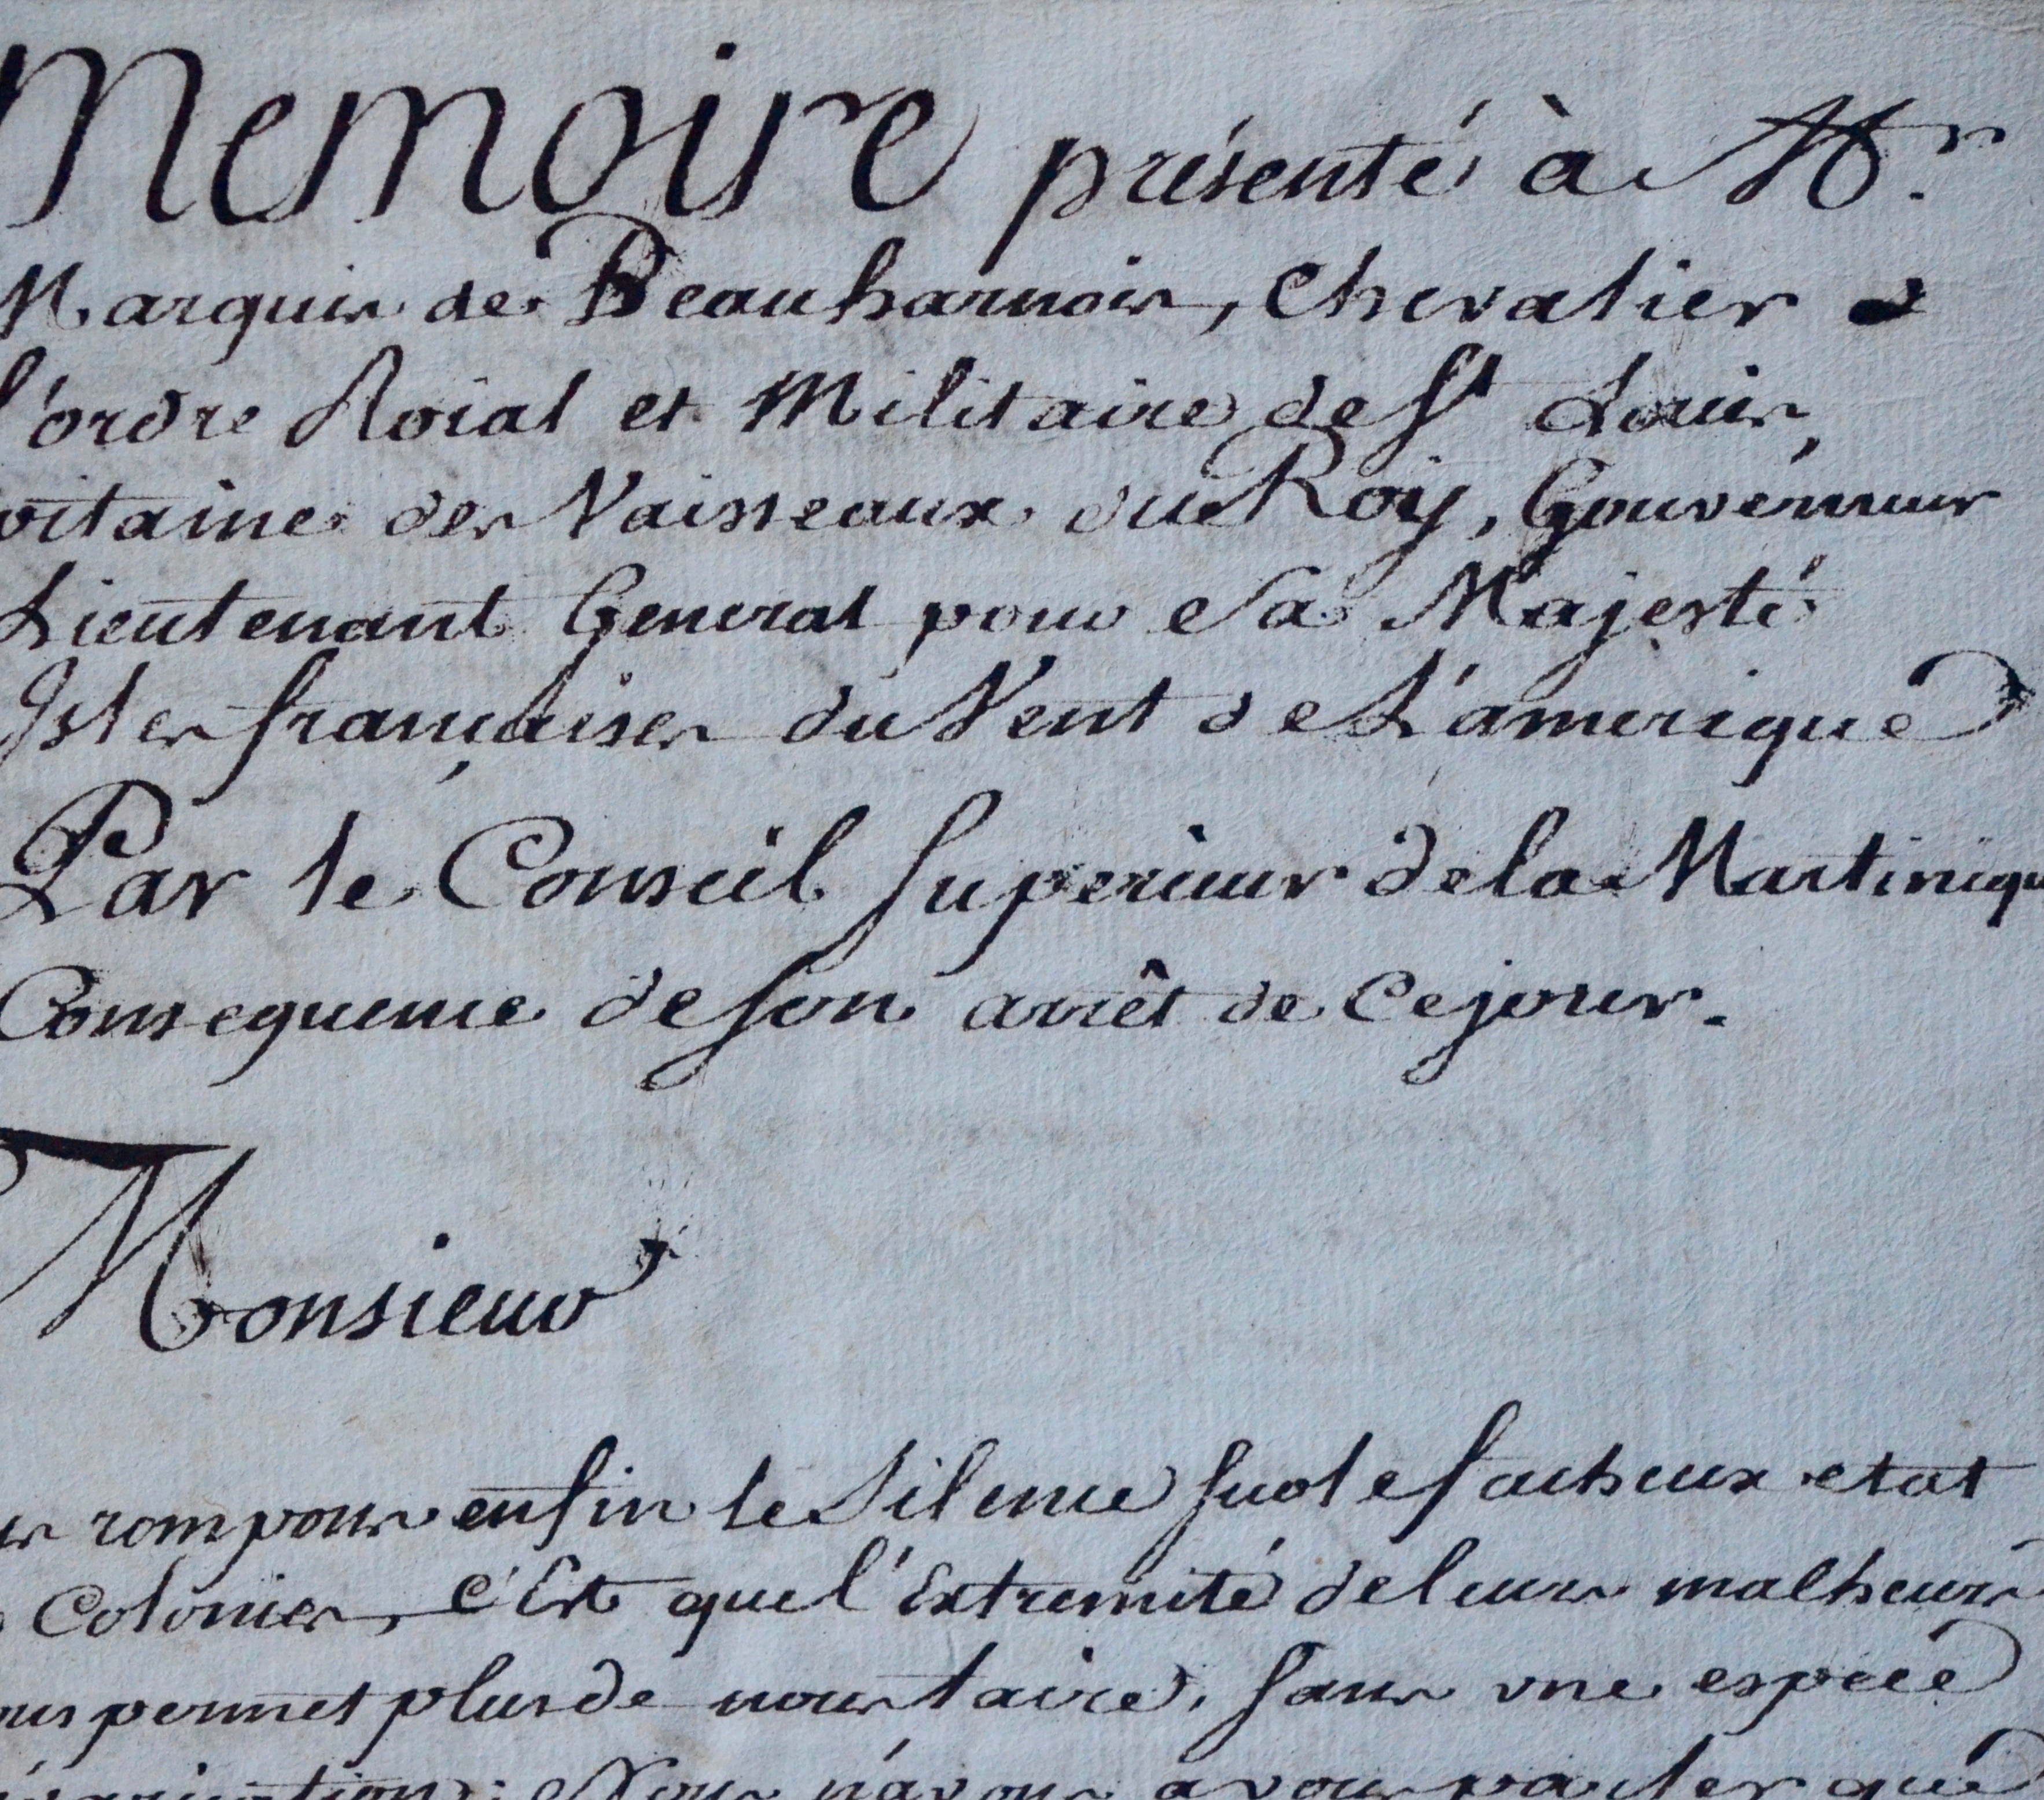 Memoire présenté à Mr.
Marquis de Beauharnois, Chevalier
l'ordre Roial et Militaire de St Louis,
pitaine des Vaisseaux du Roy, Gouverneur
Lieutenant General pour Sa Majesté
Isles françaises du Vent de L'amerique
Par le Conseil Superieur de la Martiniqu
Consequence de son arrêt de Ce jour.
Monsieur
rompons enfin le Silence sur le facheux etat
Colonies, c'Est que l'Extremité de leurs malheurs
ous permet plus de nous taire, sans une espece
Nous n'avons a vous parler que